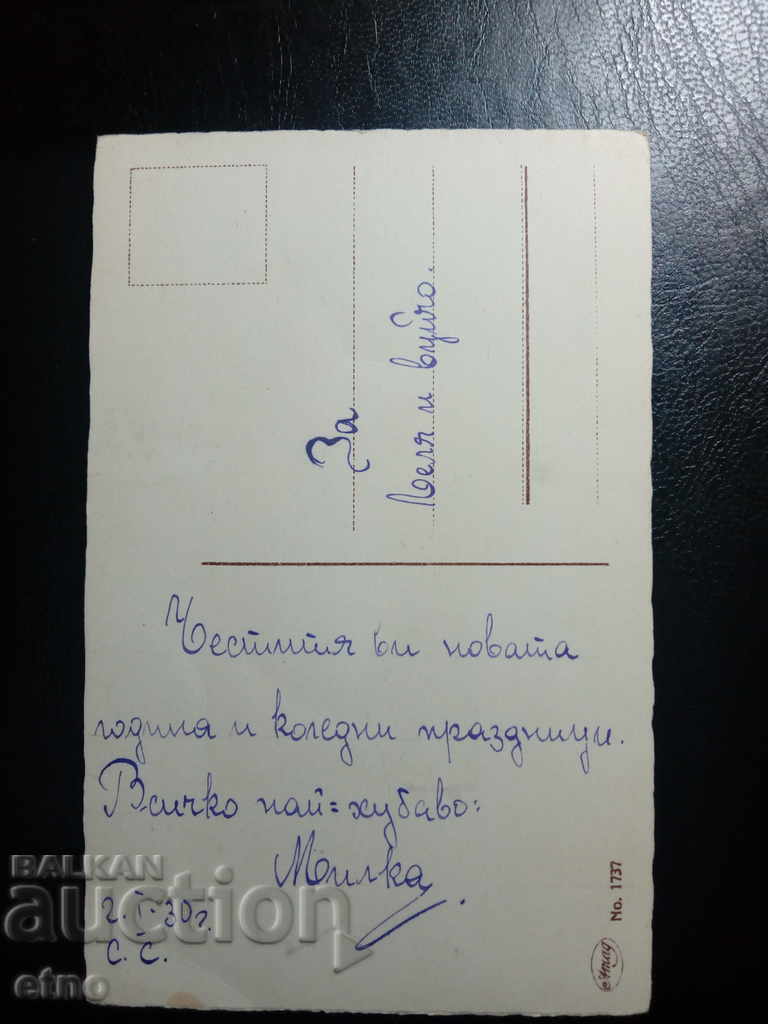 За
Леля и вуйчо.
Честитя ви новата
година и коледни праздници.
Всичко най=хубаво:
Милка
2.I.30г.
С.С.
No. 1737
BALKAN
auction
etno